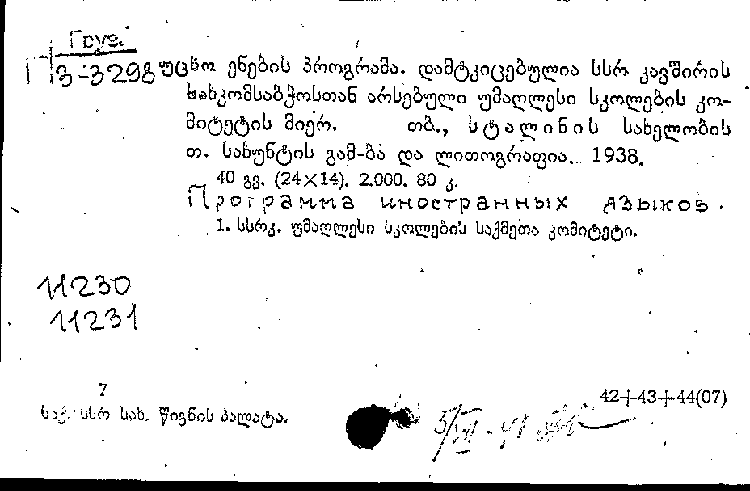 Груз.
П3-3298 უცხო ენების პროგრამა. დამტკიცებულია სსრ კავშირის
სახკომსაბჭოსთან არსებული უმაღლესი სკოლების კო-
მიტეტის მიერ. თბ., სტალინის სახელობის
თ. სახუნტის გამ-ბა და ლითოგრაფია. 1938.
40 გვ. (24×14). 2.000. 80 კ.
Программа иностранных языков.
1. სსრკ. უმაღლესი სკოლების საქმეთა კომიტეტი.
11230
11231
7
42+43+44(07)
საქ. სსრ სახ. წიგნის პალატა.